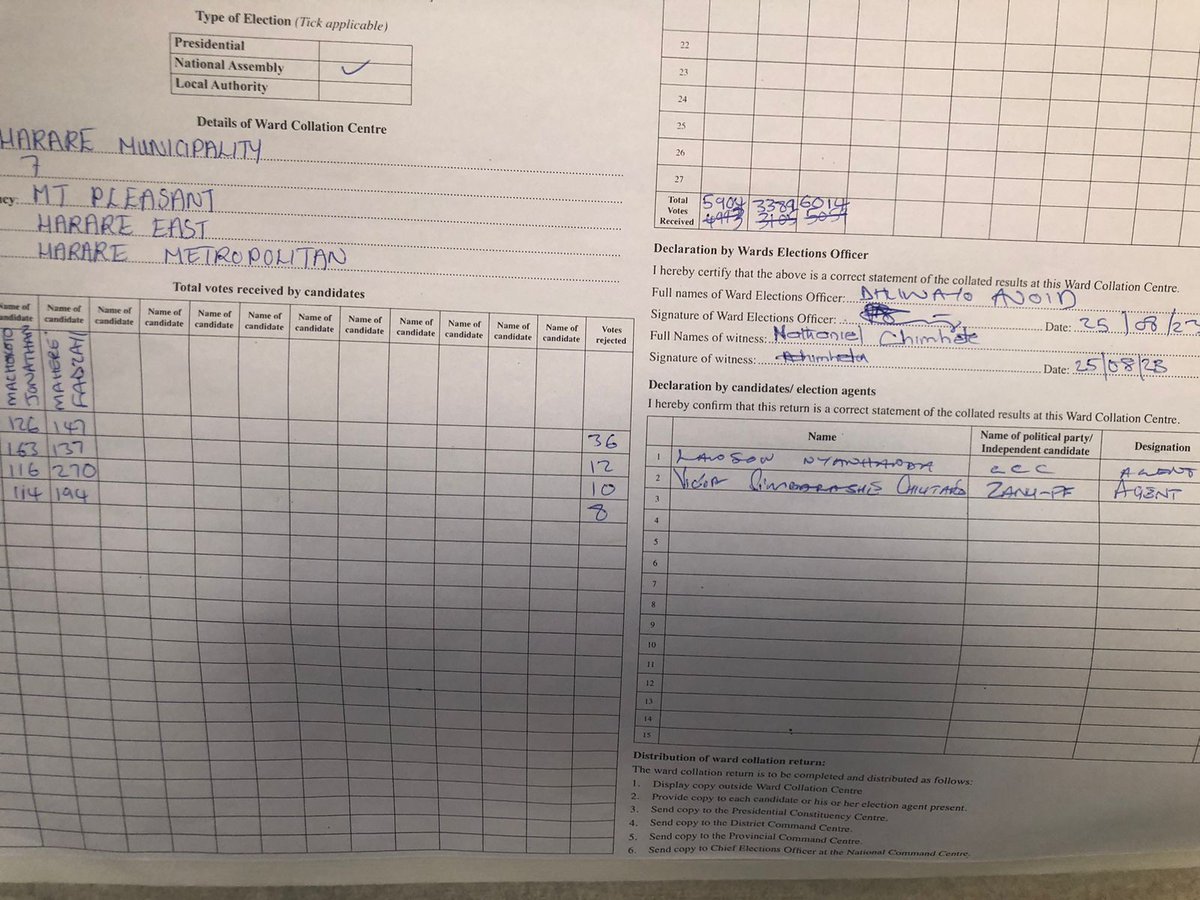 Type of Election (Tick applicable)
Presidential
National Assembly ✓
Local Authority
Details of Ward Collation Centre
HARARE MUNICIPALITY
7
MT PLEASANT
HARARE EAST
HARARE METROPOLITAN
Total votes received by candidates
Name of candidate Name of candidate Name of candidate Name of candidate Name of candidate Name of candidate Name of candidate Name of candidate Name of candidate Name of candidate Name of candidate Votes rejected
JONATHAN
MAHERE FADZAYI
126 147 36
163 137 12
116 270 10
114 194 8
22
23
24
25
26
27
Total Votes Received 5904 3389 6014
4993 3105
Declaration by Wards Elections Officer
I hereby certify that the above is a correct statement of the collated results at this Ward Collation Centre.
Full names of Ward Elections Officer: DHLIWAYO AVOID
Signature of Ward Elections Officer: Date: 25/08/23
Full Names of witness: Nathaniel
Signature of witness: Date: 25/08/23
Declaration by candidates/ election agents
I hereby confirm that this return is a correct statement of the collated results at this Ward Collation Centre.
Name Name of political party/ Independent candidate Designation
1 LAWSON CCC AGENT
2 VICTOR ZANU-PF AGENT
3
4
5
6
7
8
9
10
11
12
13
14
15
Distribution of ward collation return:
The ward collation return is to be completed and distributed as follows:
1. Display copy outside Ward Collation Centre
2. Provide copy to each candidate or his or her election agent present.
3. Send copy to the Presidential Constituency Centre.
4. Send copy to the District Command Centre.
5. Send copy to the Provincial Command Centre.
6. Send copy to Chief Elections Officer at the National Command Centre.